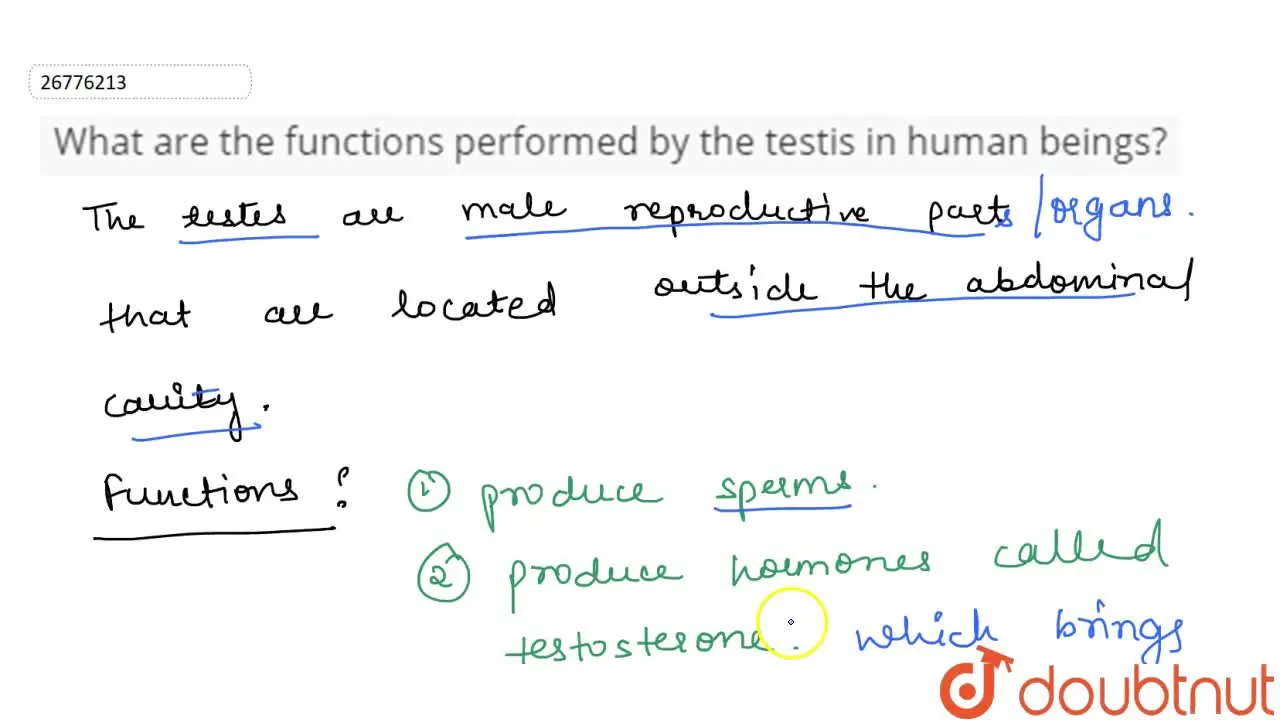 26776213
What are the functions performed by the testis in human beings?
The testes are male reproductive parts/organs.
that are located outside the abdominal
cavity.
Functions :
① produce sperms.
② produce hormones called
testosterone. which brings
doubtnut